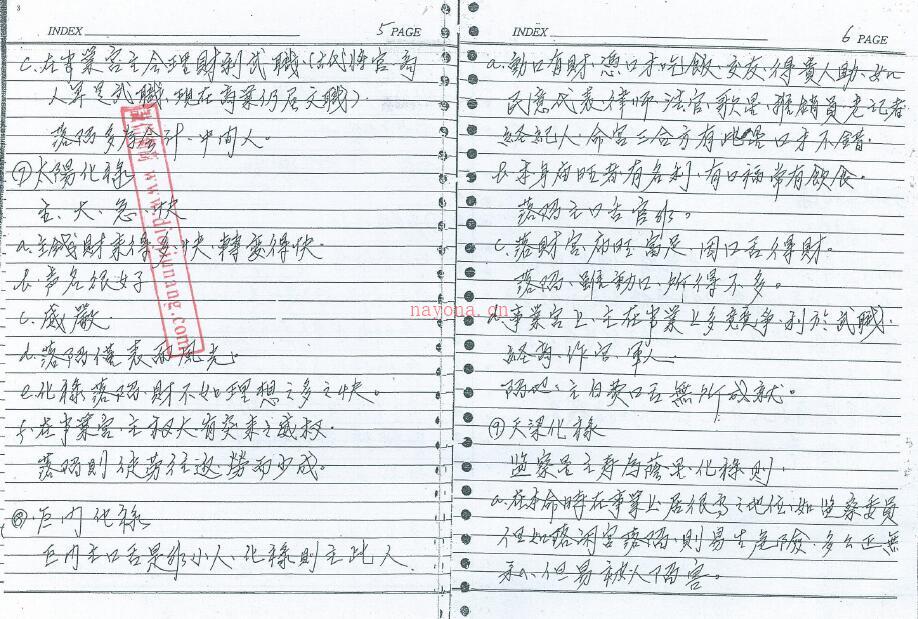 3
INDEX
5 PAGE
c.在事業宮主會理財利武職.(古代將官商
人算是武職,現在商業仍居文職)
落陷多為會計.中間人。
⑦太陽化祿
主、大、急、快
a.主錢財來得多、快,轉變得快.
b.聲名很好
c.威嚴
d.落陷僅表面風光。
e.化祿落陷.財不如理想之多之快。
f.在事業宮.主权大.有突來之威权.
落陷則使勞往返勞而少成。
⑧.巨门化祿
巨门主口舌是非小人、化祿則主此人
INDEX
6 PAGE
a.動口有財.憑口才吃飯.交友.得貴人助.如
民意代表律師法官.歌星.推銷員.記者
經紀人命宮三合方有此星口才不錯.
b.本身庙旺者有名利.有口福常有飲食.
落陷主口舌官非。
c.落財宮.庙旺.富足.開口舌得財.
落陷.雖動口.所得不多。
d.事業宮上.主在事業上多竞爭.利於武職.
經商.作官.軍人.
陷地.主白費口舌無所成就。
⑨天梁化祿
監察星主壽為蔭星.化祿則.
a.在本命時在事業上居很高之地位.如监察委員
但如落闲宮落陷.則易生危險.多公正無
私.但易被人陷害。
www.diqiunang.com
nayona.cn